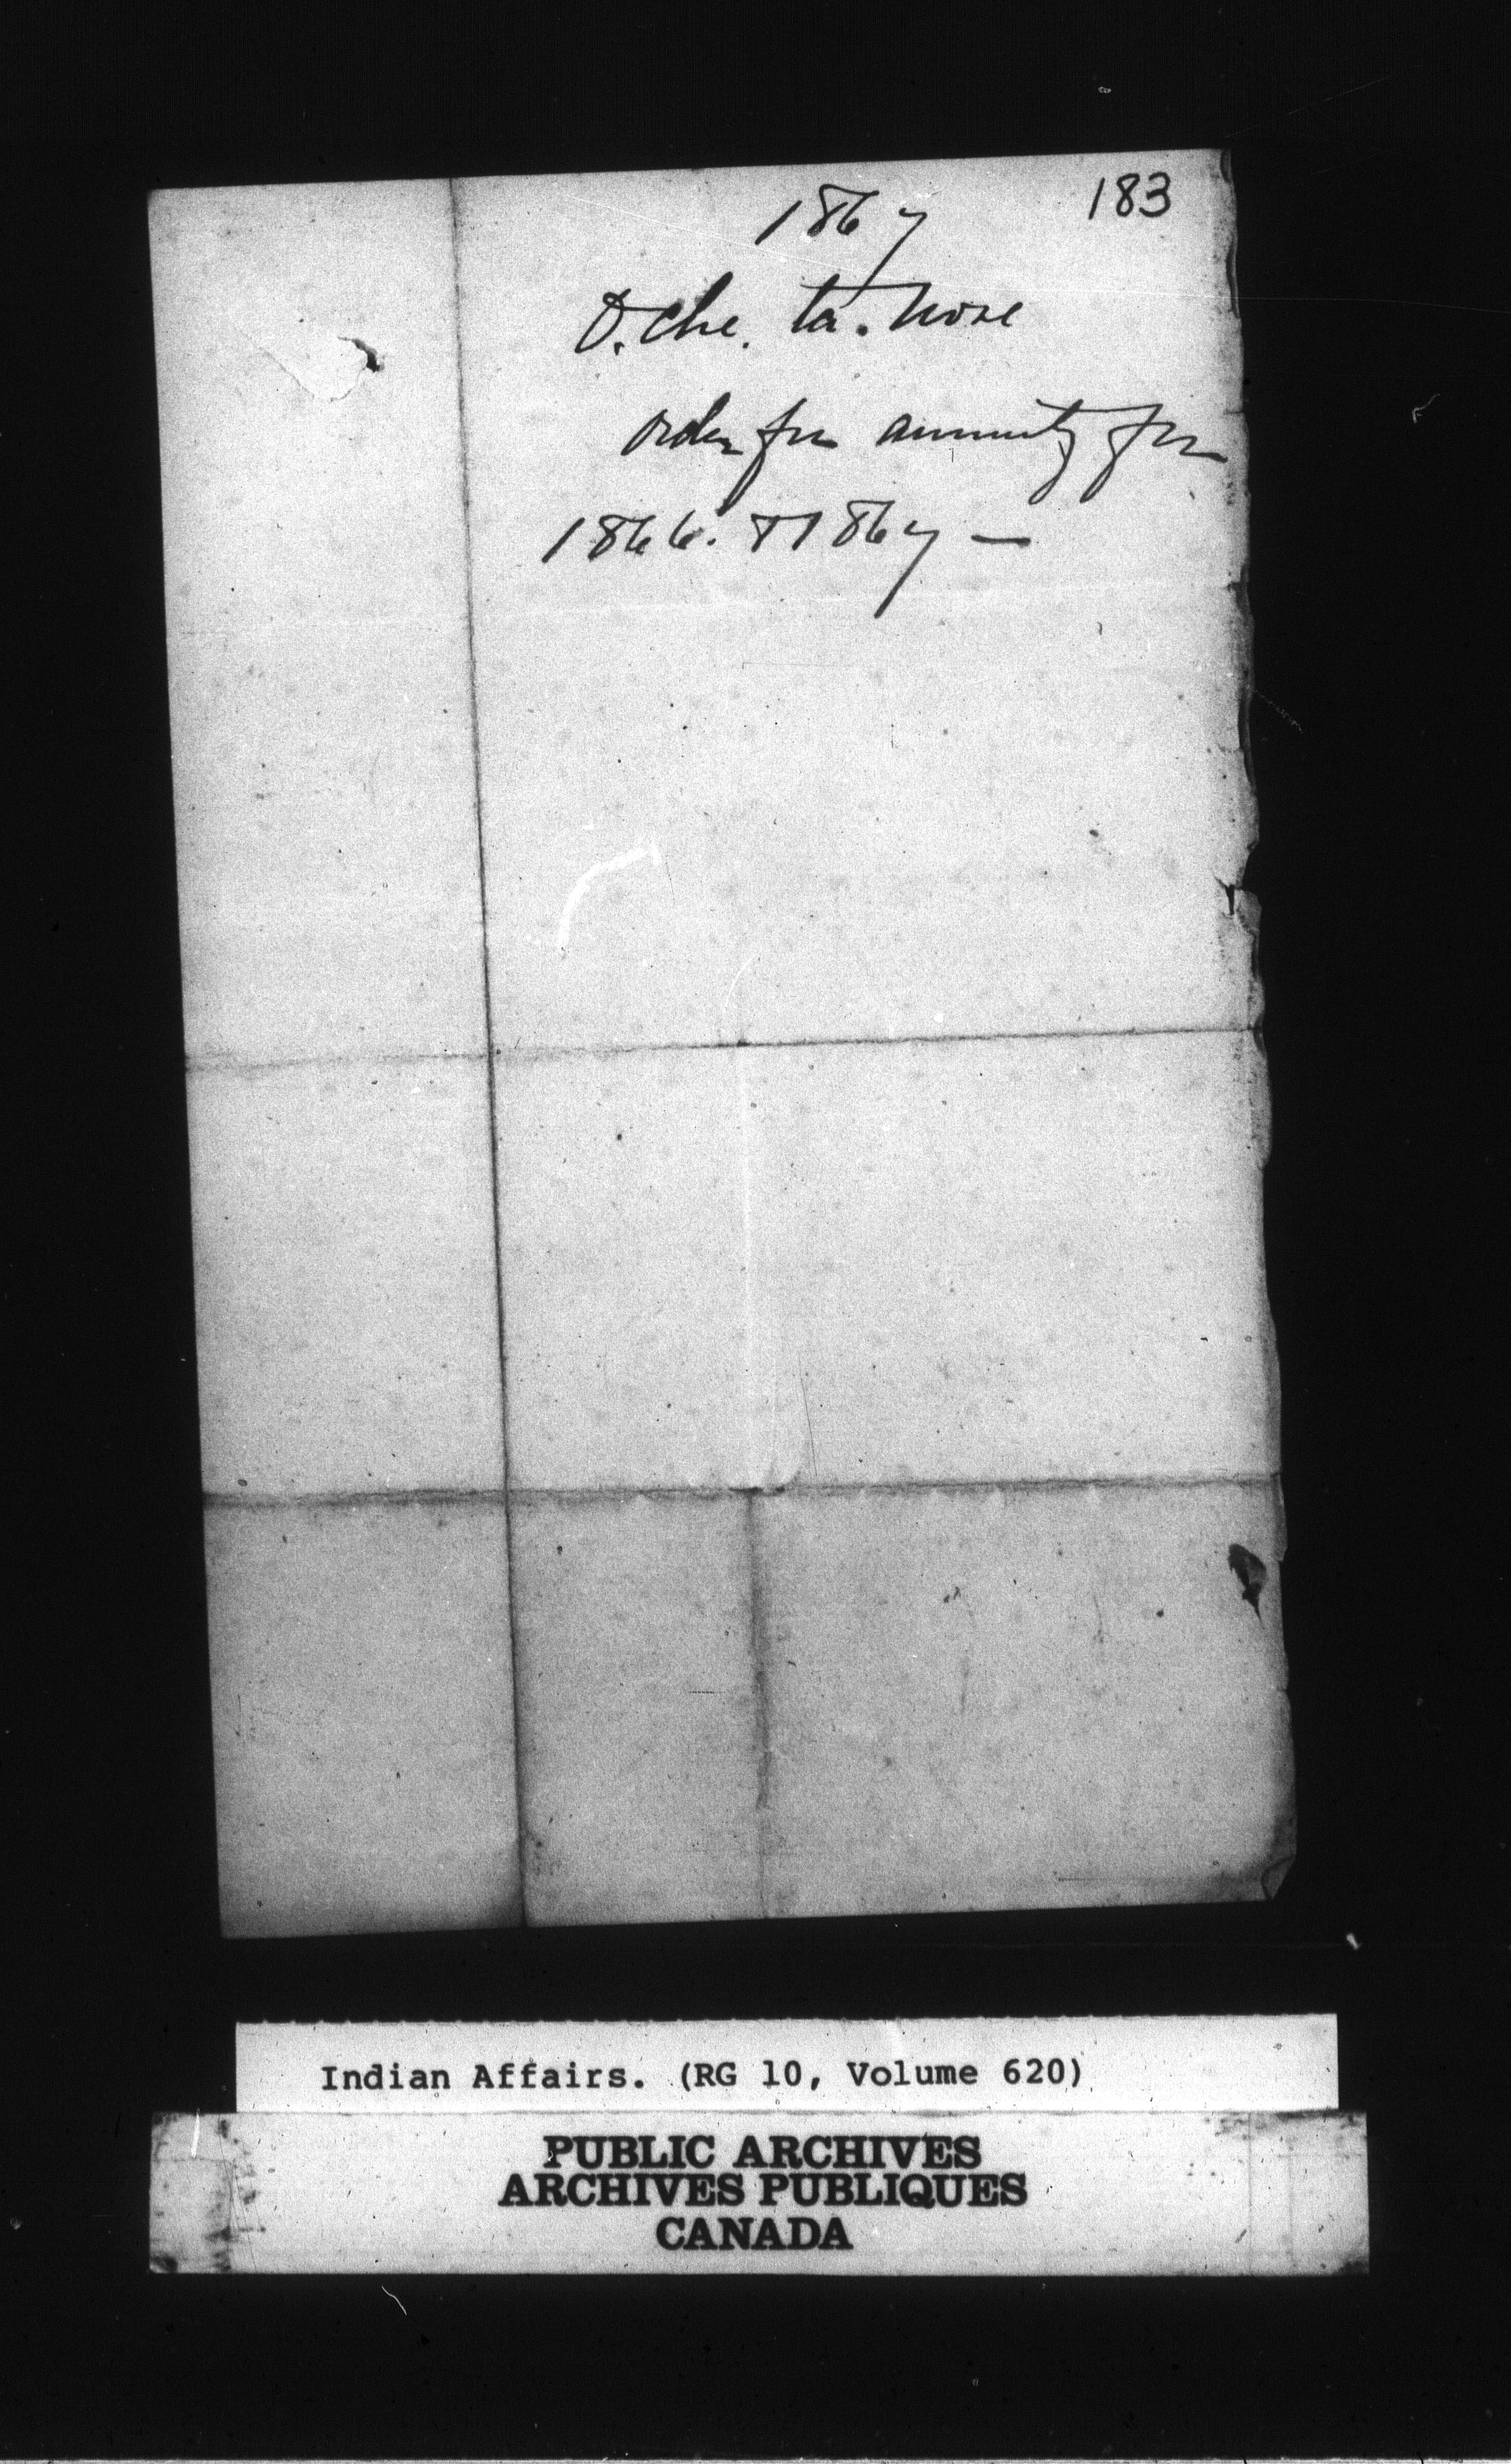 183
1867
O. Che. ta. nose
order for annuity for
1866. & 1867 —
Indian Affairs. (RG 10, Volume 620)
PUBLIC ARCHIVES
ARCHIVES PUBLIQUES
CANADA